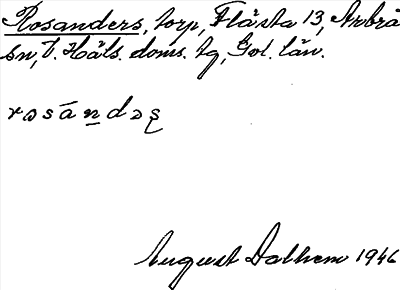 Rosanders, torp, Flästa 13, Arbrå
sn, V. Häls. doms. tg, Gvl. län.
rɷsándəʂ
August Dalhem 1946